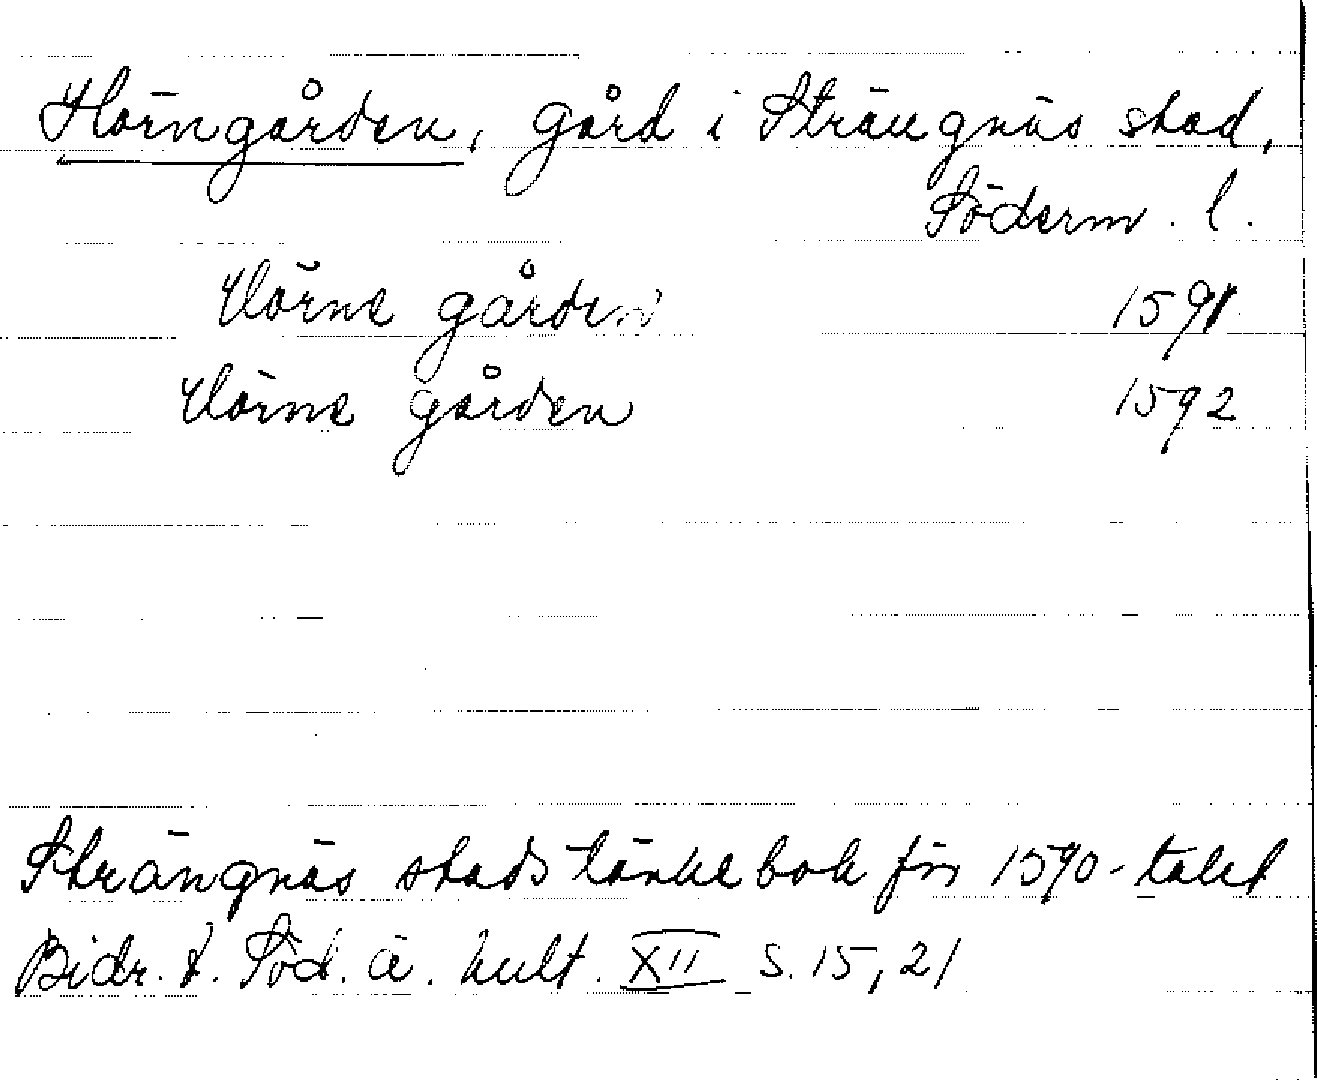 Hörngården, gård i Strängnäs stad,
Söderm. l.
Hörne gården 1591
Hörne gården 1592
Strängnäs stads tänkebok för 1590-talet
Bidr. t. Söd. ä. kult. XII s. 15, 21